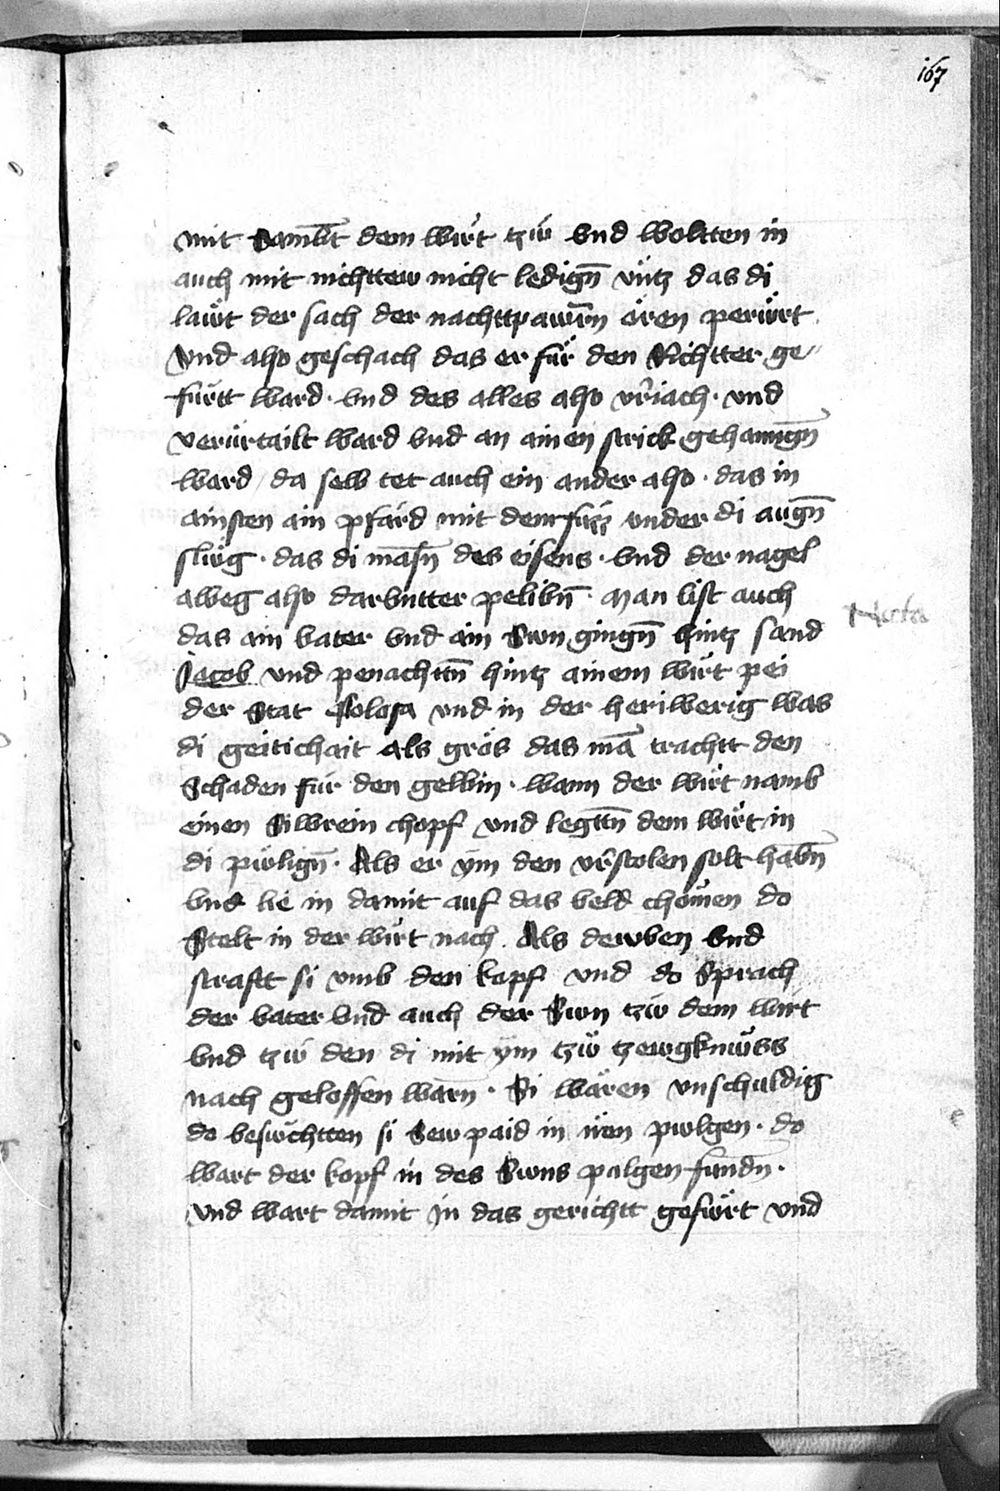 167
mit Sambt dem wirt tzů vnd woltten in
auch mit nichttew nicht ledign̄ vntz das di
laẅt der sach der nachttpawrn̄ ören perürt
Vnd also geschach das er für den Richtter ge⸗
fürtt ward · vnd des alles also v̾iach · vnd
verürtailt ward vnd an ainen strick gehanngn̄
ward / da selb tet auch ein ander also · das in
ainsten ain pfärd mit dem fuzz vnder di augn̄
slůg · das di masn̄ des eisens · vnd der nagel
alweg also darvntter pelibn̄ · Man list auch
das ain vater vnd ain Swn gingn̄ hintz sand
Jacob vnd penachttn̄ hintz ainem wirt pei
der Stat Tolosa vnd in der heriwerig was
di geitichait als grös das mā trachtt den
Schaden für den gelbin · wann der wirt namb
einen Silbrein chopf vnd legttn̄ dem wirt in
di pwlign̄ · Als er ÿm den v̾stolen solt habn̄
vnd lie in damit auf das veld chömen do
Stelt in der wirt nach · Als dewben vnd
straftt si vmb den kopf vnd do Sprach
der vater vnd auch der Swn tzů dem wirt
vnd tzů den di mit ÿm tzů tzewgknüss
nach geloffen warn̄ · Si wären vnschuldig
do beswchtten si Sew paid in iren pwlgen · do
wart der kopf in des Swns pulgen fundn̄ ·
Vnd wart damit in das gerichtt gefürt vnd
Nota